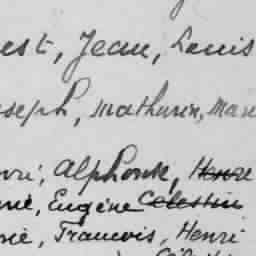 est, Jean, Louis
seph, Mathurin, Mari
nri, Alphonse, Henri
rie, Eugène Célestin
rie, Francois, Henri